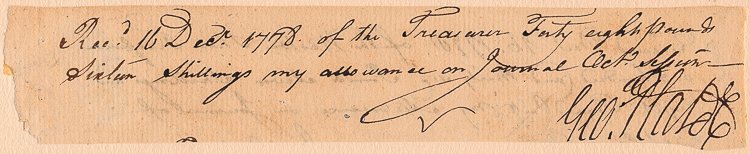 Rec.d 16 Dec.r 1778. of the Treasurer Forty eight pounds
Sixteen Shillings my allowance on Journal Oct.r Session—
Geo. Plater